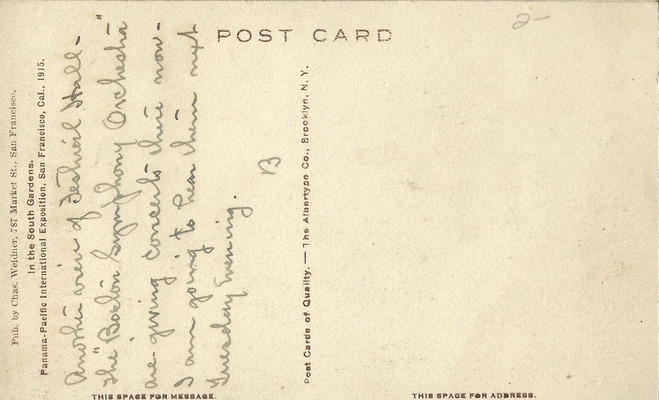 POST CARD
2-
Pub. by Chas. Weidner, 787 Market St., San Francisco.
In the South Gardens.
Panama-Pacific International Exposition, San Francisco, Cal., 1915.
Another view of Festival Hall-
The "Boston Symphony Orchestra"
are giving concerts there now-
I am going to hear them next
Tuesday Evening.
B
Post Cards of Quality. — The Albertype Co., Brooklyn, N. Y.
THIS SPACE FOR MESSAGE.
THIS SPACE FOR ADDRESS.